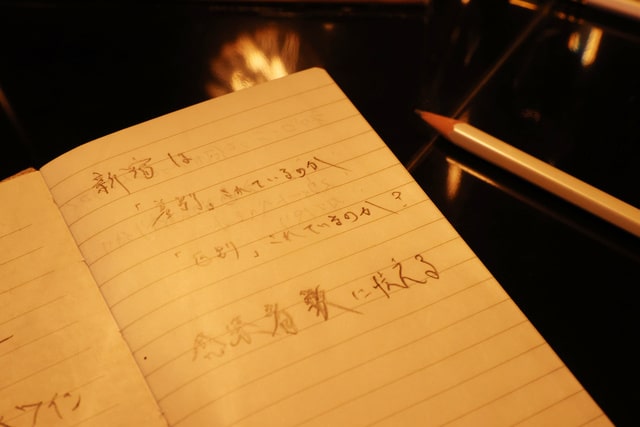 新宿は
「差別」されているのか
「区別」されているのか?
感染者数に怯える
ワイン